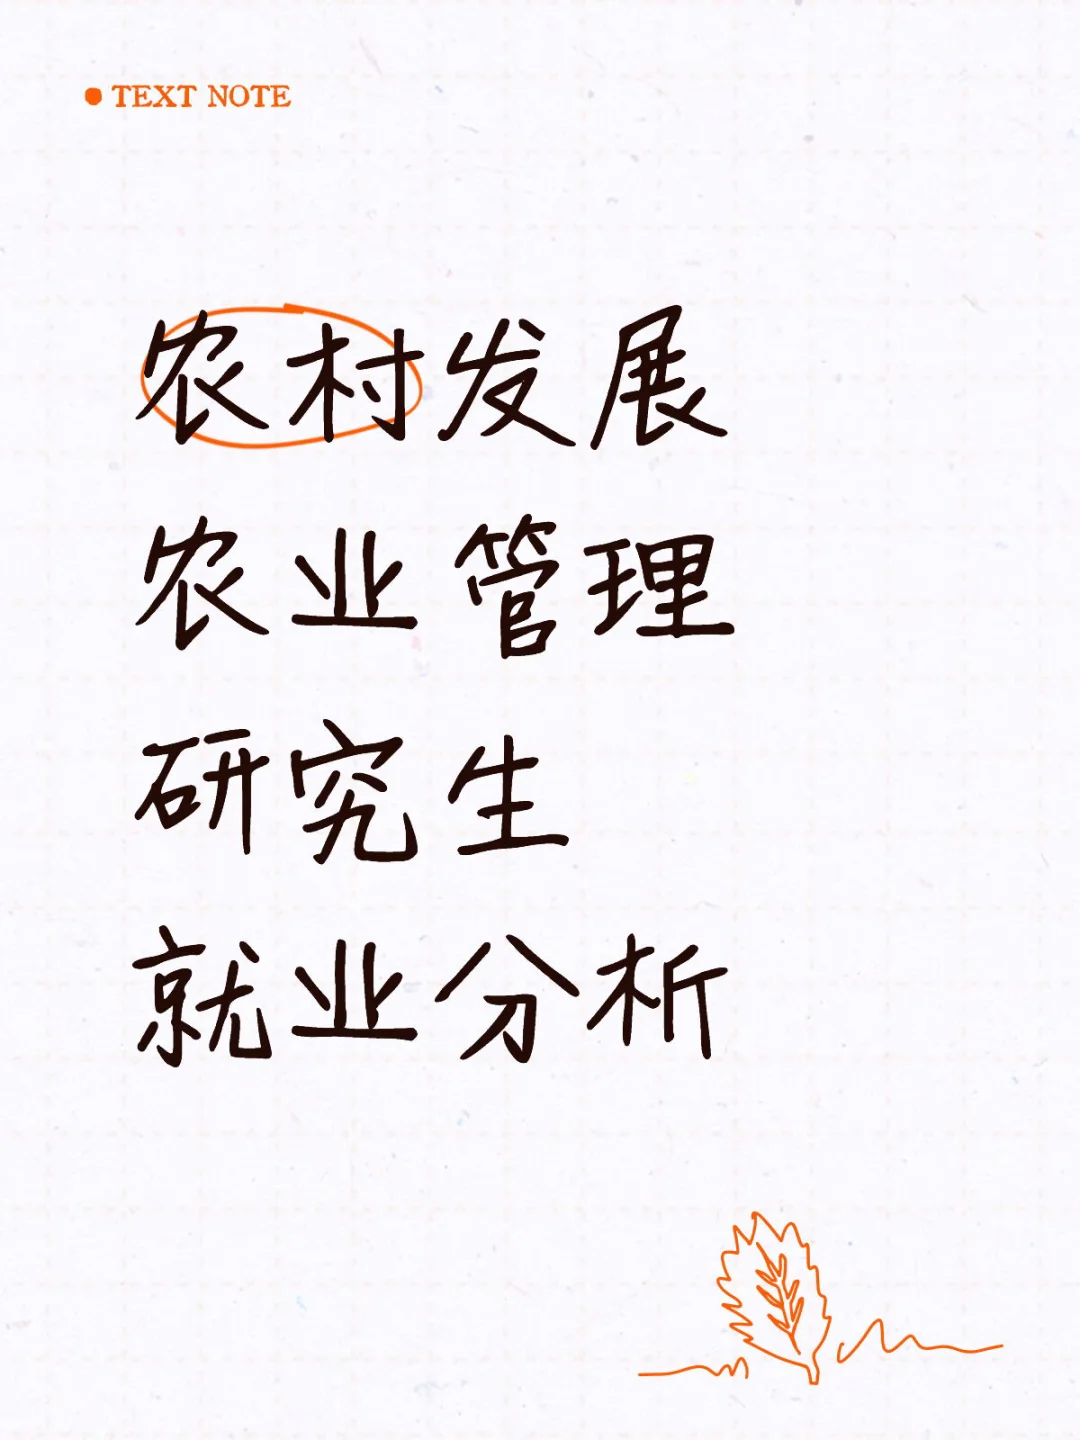 TEXT NOTE
农村发展
农业管理
研究生
就业分析